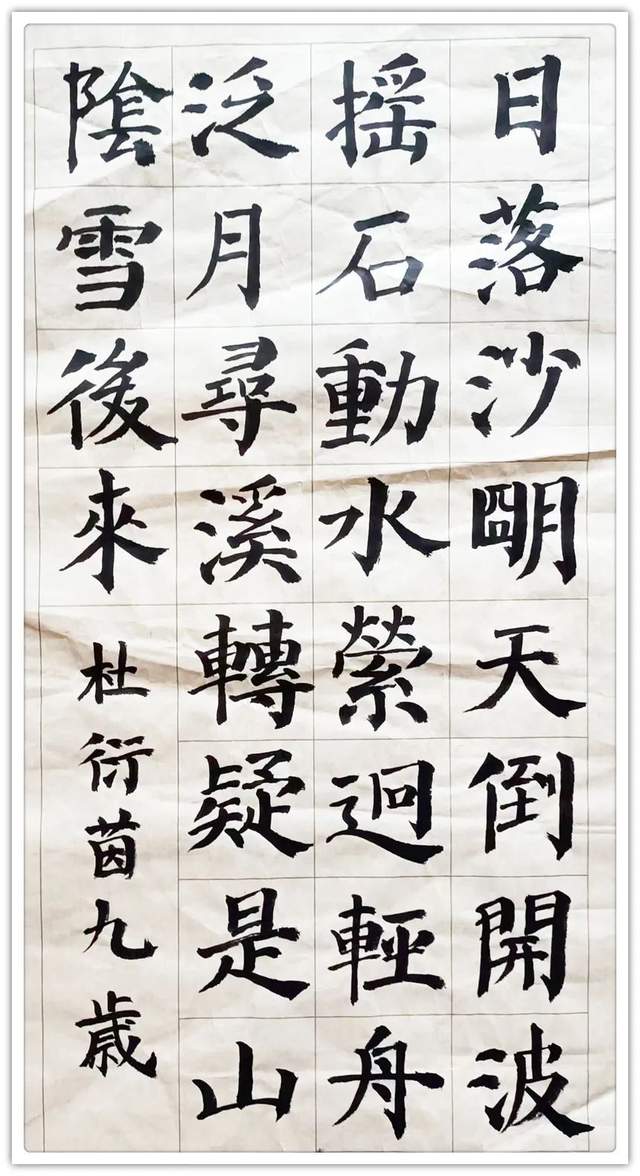 日落沙明天倒開波
摇石動水縈迴輕舟
泛月尋溪轉疑是山
陰雪後來
杜衍茵九歲